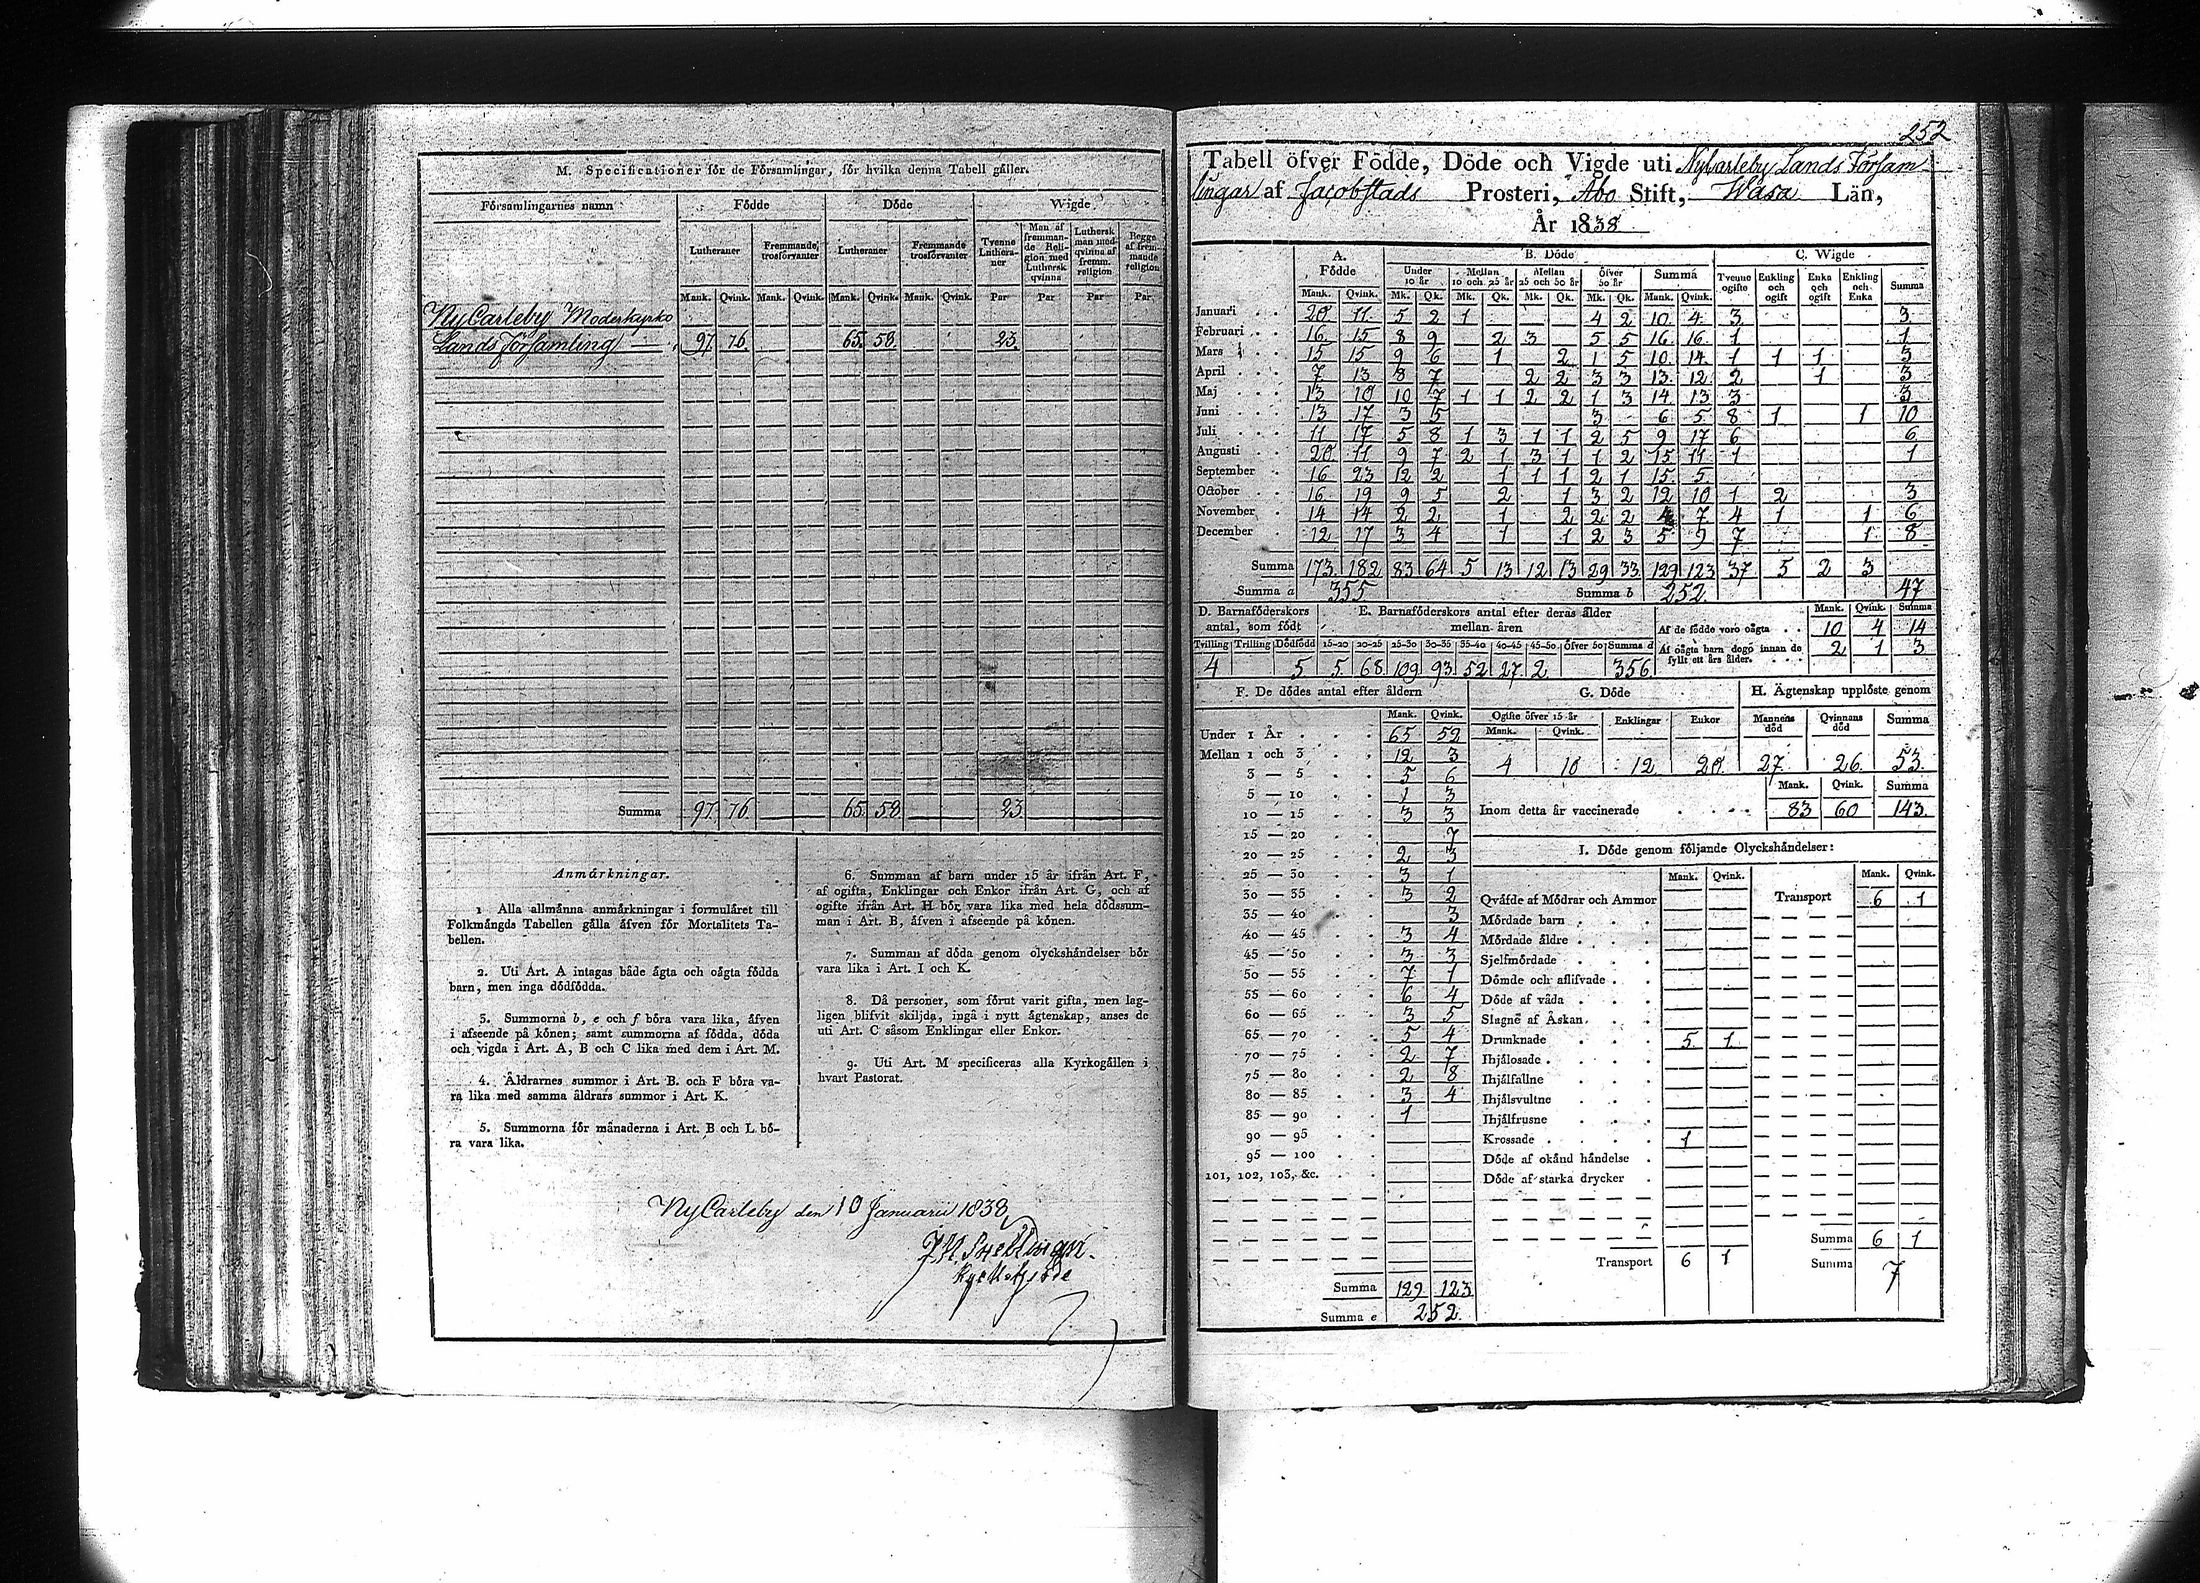 M. Specificationer för de Församlingar, för hvilka denna Tabell gäller.
Församlingarnes namn Födde Döde Wigde
Lutheraner Fremmande trosförvanter Lutheraner Fremmande trosförvanter Tvenne Lutheraner Man af fremmande Religion med Luthersk qvinna Luthersk man med qvinna af fremm. religion Begge af fremmande religion
Mank. Qvink. Mank. Qvink. Mank. Qvink. Mank. Qvink. Par Par Par Par
NyCarleby Moderkyrko
Lands församling 97 76 65 58 23
Summa 97 76 65 58 23
Anmärkningar.
1 Alla allmänna anmärkningar i formuläret till
Folkmängds Tabellen gälla äfven för Mortalitets Ta-
bellen.
2. Uti Art. A intagas både ägta och oägta födda
barn, men inga dödfödda.
3. Summorna b, e och f böra vara lika, äfven
i afseende på könen; samt summorna af födda, döda
och vigda i Art. A, B och C lika med dem i Art. M.
4. Åldrarnes summor i Art. B. och F böra va-
ra lika med samma åldrars summor i Art. K.
5. Summorna för månaderna i Art. B och L bö-
ra vara lika.
6. Summan af barn under 15 år ifrån Art. F,
af ogifta, Enklingar och Enkor ifrån Art. G, och af
ogifte ifrån Art. H bör vara lika med hela dödssum-
man i Art. B, äfven i afseende på könen.
7. Summan af döda genom olyckshändelser bör
vara lika i Art. I och K.
8. Då personer, som förut varit gifta, men lag-
ligen blifvit skiljda, ingå i nytt ägtenskap, anses de
uti Art. C såsom Enklingar eller Enkor.
9. Uti Art. M specificeras alla Kyrkogällen i
hvart Pastorat.
NyCarleby den 10 Januarii 1838
252
Tabell öfver Födde, Döde och Vigde uti NyCarleby Lands Församlingar af Jacobstads Prosteri, Åbo Stift, Wasa Län,
År 1838
A. Födde B. Döde C. Wigde
Under 10 år Mellan 10 och 25 år Mellan 25 och 50 år Öfver 50 år Summa Tvenne ogifte Enkling och ogift Enka och ogift Enkling och Enka Summa
Mank. Qvink. Mk. Qk. Mk. Qk. Mk. Qk. Mk. Qk. Mank. Qvink.
Januari 20 11 5 2 1 4 2 10 4 3 3
Februari 16 15 8 9 2 3 5 5 16 16 1 1
Mars 15 15 9 6 1 2 1 5 10 14 1 1 1 3
April 7 13 8 7 2 2 3 3 13 12 2 1 3
Maj 13 10 10 7 1 1 2 2 1 3 14 13 3 3
Juni 13 17 3 5 3 6 5 8 1 1 10
Juli 11 17 5 8 1 3 1 1 2 5 9 17 6 6
Augusti 20 11 9 7 2 1 3 1 1 2 15 11 1 1
September 16 23 12 2 1 1 1 2 1 15 5
October 16 19 9 5 2 1 3 2 12 10 1 2 3
November 14 14 2 2 1 2 2 2 4 7 4 1 1 6
December 12 17 3 4 1 1 2 3 5 9 7 1 8
Summa 173 182 83 64 5 13 12 13 29 33 129 123 37 5 2 3
Summa a 355 Summa b 252 47
D. Barnaföderskors antal, som födt
Tvilling Trilling Dödfödd
4 5
E. Barnaföderskors antal efter deras ålder mellan åren
15-20 20-25 25-30 30-35 35-40 40-45 45-50 öfver 50 Summa d
5 68 109 93 52 27 2 356
Mank. Qvink. Summa
Af de födde voro oägta 10 4 14
Af oägta barn dogo innan de fyllt ett års ålder. 2 1 3
F. De dödes antal efter åldern
Mank. Qvink.
Under 1 År 65 52
Mellan 1 och 3 12 3
3 — 5 5 6
5 — 10 1 3
10 — 15 3 3
15 — 20 7
20 — 25 2 3
25 — 30 3 1
30 — 35 3 2
35 — 40 3
40 — 45 3 4
45 — 50 3 3
50 — 55 7 1
55 — 60 6 4
60 — 65 3 5
65 — 70 5 4
70 — 75 2 7
75 — 80 2 8
80 — 85 3 4
85 — 90 1
90 — 95
95 — 100
101, 102, 103, &c.
Summa 129 123
Summa e 252
G. Döde
Ogifte öfver 15 år Enklingar Enkor
Mank. Qvink.
4 10 12 20
H. Ägtenskap upplöste genom
Mannens död Qvinnans död Summa
27 26 53
Mank. Qvink. Summa
Inom detta år vaccinerade 83 60 143
I. Döde genom följande Olyckshändelser:
Mank. Qvink. Mank. Qvink.
Qväfde af Mödrar och Ammor Transport 6 1
Mördade barn
Mördade äldre
Sjelfmördade
Dömde och aflifvade
Döde af våda
Slagne af Åskan
Drunknade 5 1
Ihjälosade
Ihjälfallne
Ihjälsvultne
Ihjälfrusne
Krossade 1
Döde af okänd händelse
Döde af starka drycker
Summa 6 1
Transport 6 1 Summa 7